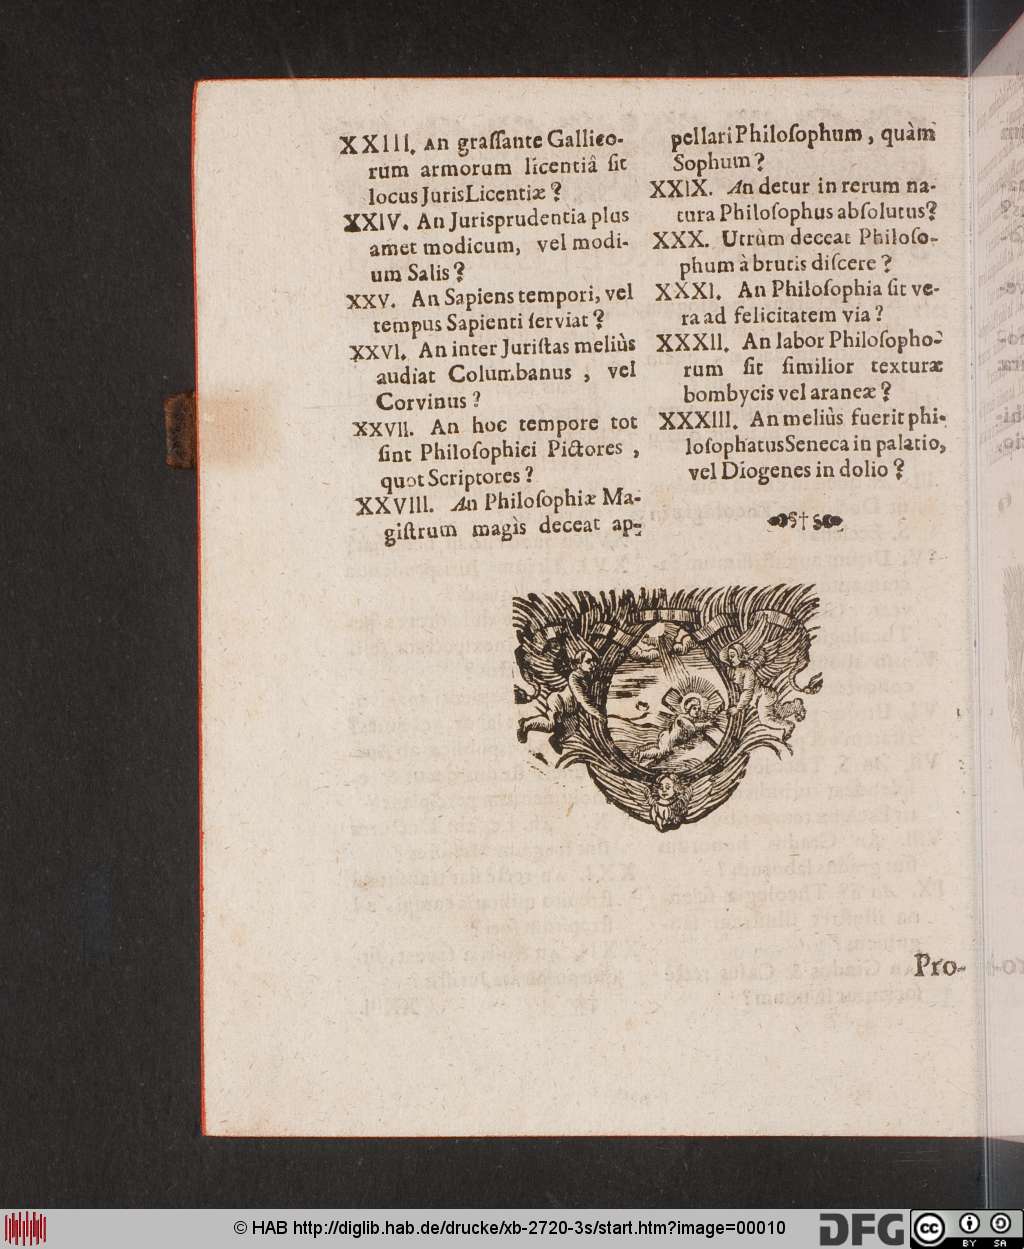 XXIII. An graſſante Gallico-
rum armorum licentiâ ſit
locus JurisLicentiæ?
XXIV. An Jurisprudentia plus
amet modicum, vel modi-
um Salis?
XXV. An Sapiens tempori, vel
tempus Sapienti ſerviat?
XXVI. An inter Juriſtas meliùs
audiat Columbanus, vel
Corvinus?
XXVII. An hoc tempore tot
ſint Philoſophici Pictores,
quot Scriptores?
XXVIII. An Philoſophiæ Ma-
giſtrum magis deceat ap-
pellari Philoſophum, quàm
Sophum?
XXIX. An detur in rerum na-
tura Philoſophus abſolutus?
XXX. Utrùm deceat Philoſo-
phum à brutis diſcere?
XXXI. An Philoſophia ſit ve-
ra ad felicitatem via?
XXXII. An labor Philoſopho-
rum ſit ſimilior texturæ
bombycis vel araneæ?
XXXIII. An meliùs fuerit phi-
loſophatusSeneca in palatio,
vel Diogenes in dolio?
Pro-
© HAB http://diglib.hab.de/drucke/xb-2720-3s/start.htm?image=00010
DFG
cc BY SA